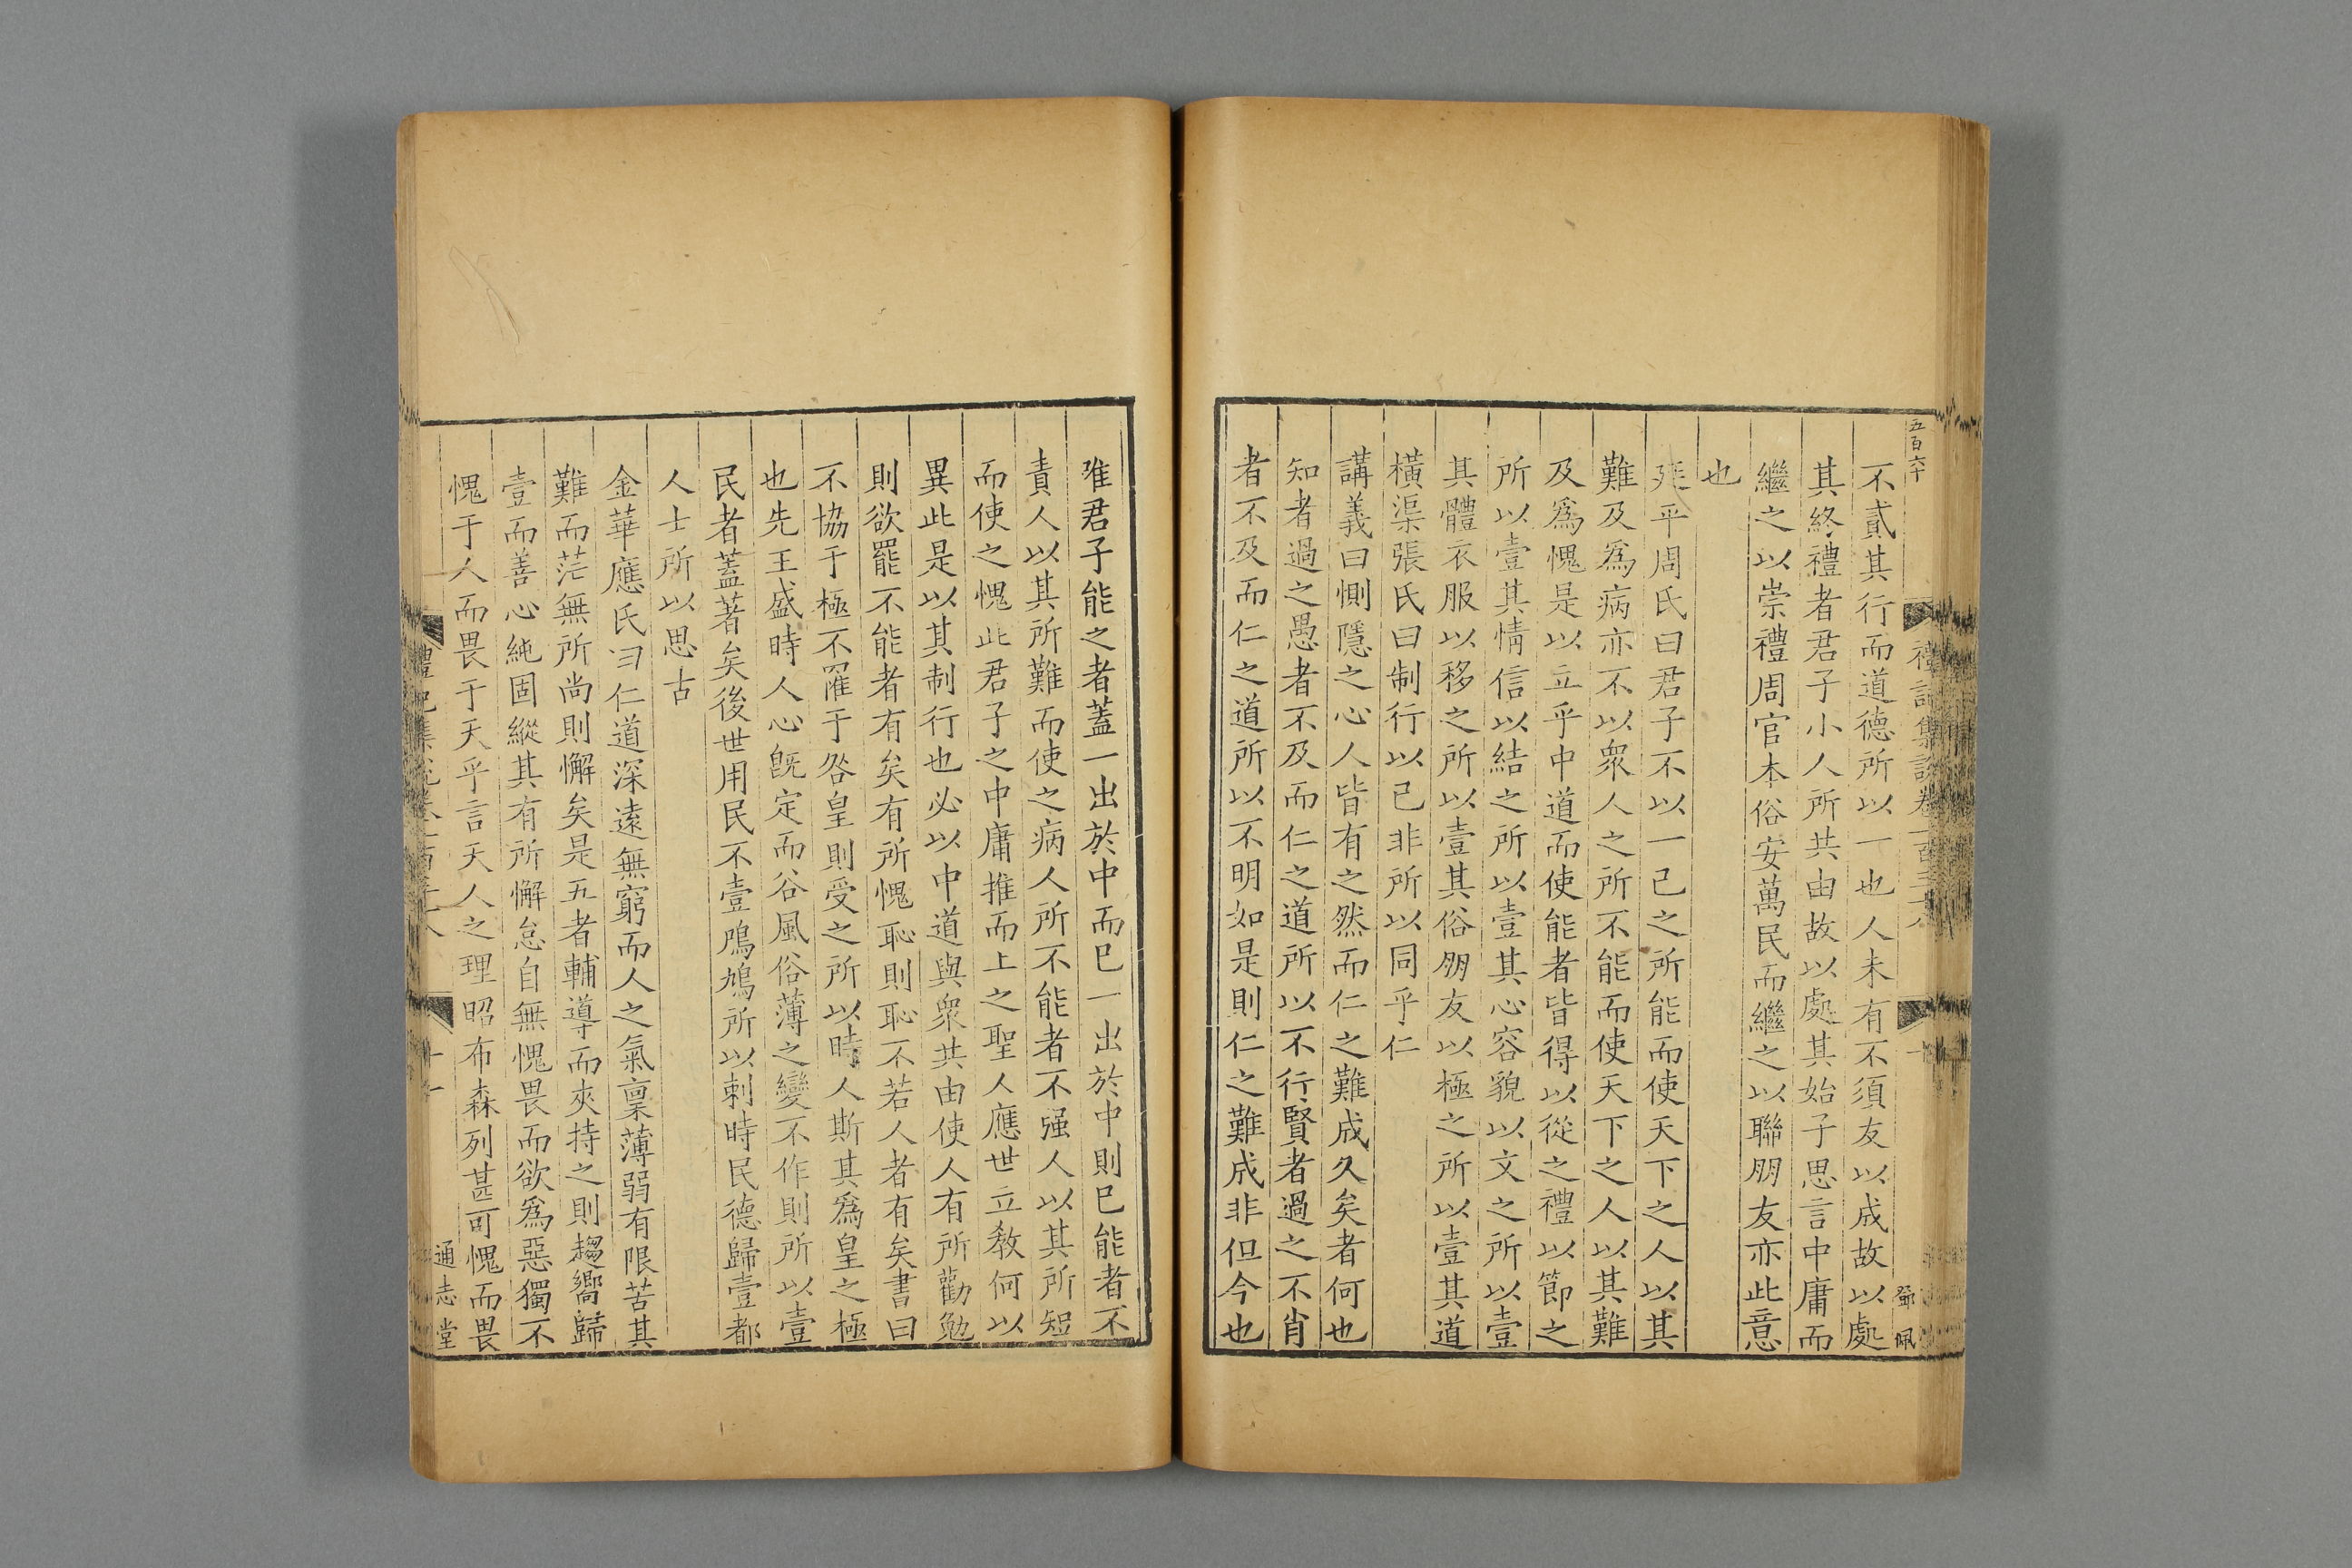 五百六十
禮記集說卷一百三十八
鄧珮
不貳其行而道德所以一也人未有不須友以成故以處
其終禮者君子小人所共由故以處其始子思言中庸而
繼之以崇禮周官本俗安萬民而繼之以聯朋友亦此意
也
延平周氏曰君子不以一己之所能而使天下之人以其
難及爲病亦不以衆人之所不能而使天下之人以其難
及爲愧是以立乎中道而使能者皆得以從之禮以節之
所以壹其情信以結之所以壹其心容貌以文之所以壹
其體衣服以移之所以壹其俗朋友以極之所以壹其道
橫渠張氏曰制行以己非所以同乎仁
講義曰惻隱之心人皆有之然而仁之難成久矣者何也
知者過之愚者不及而仁之道所以不行賢者過之不肖
者不及而仁之道所以不明如是則仁之難成非但今也
唯君子能之者蓋一出於中而已一出於中則已能者不
責人以其所難而使之病人所不能者不强人以其所短
而使之愧此君子之中庸推而上之聖人應世立教何以
異此是以其制行也必以中道與衆共由使人有所勸勉
則欲罷不能者有矣有所愧恥則恥不若人者有矣書曰
不協于極不罹于咎皇則受之所以時人斯其爲皇之極
也先王盛時人心旣定而谷風俗薄之變不作則所以壹
民者蓋著矣後世用民不壹鳲鳩所以刺時民德歸壹都
人士所以思古
金華應氏曰仁道深遠無窮而人之氣稟薄弱有限苦其
難而茫無所尚則懈矣是五者輔導而夾持之則趨嚮歸
壹而善心純固縱其有所懈怠自無愧畏而欲爲惡獨不
愧于人而畏于天乎言天人之理昭布森列甚可愧而畏
禮記集說卷一百三十八
十一
通志堂